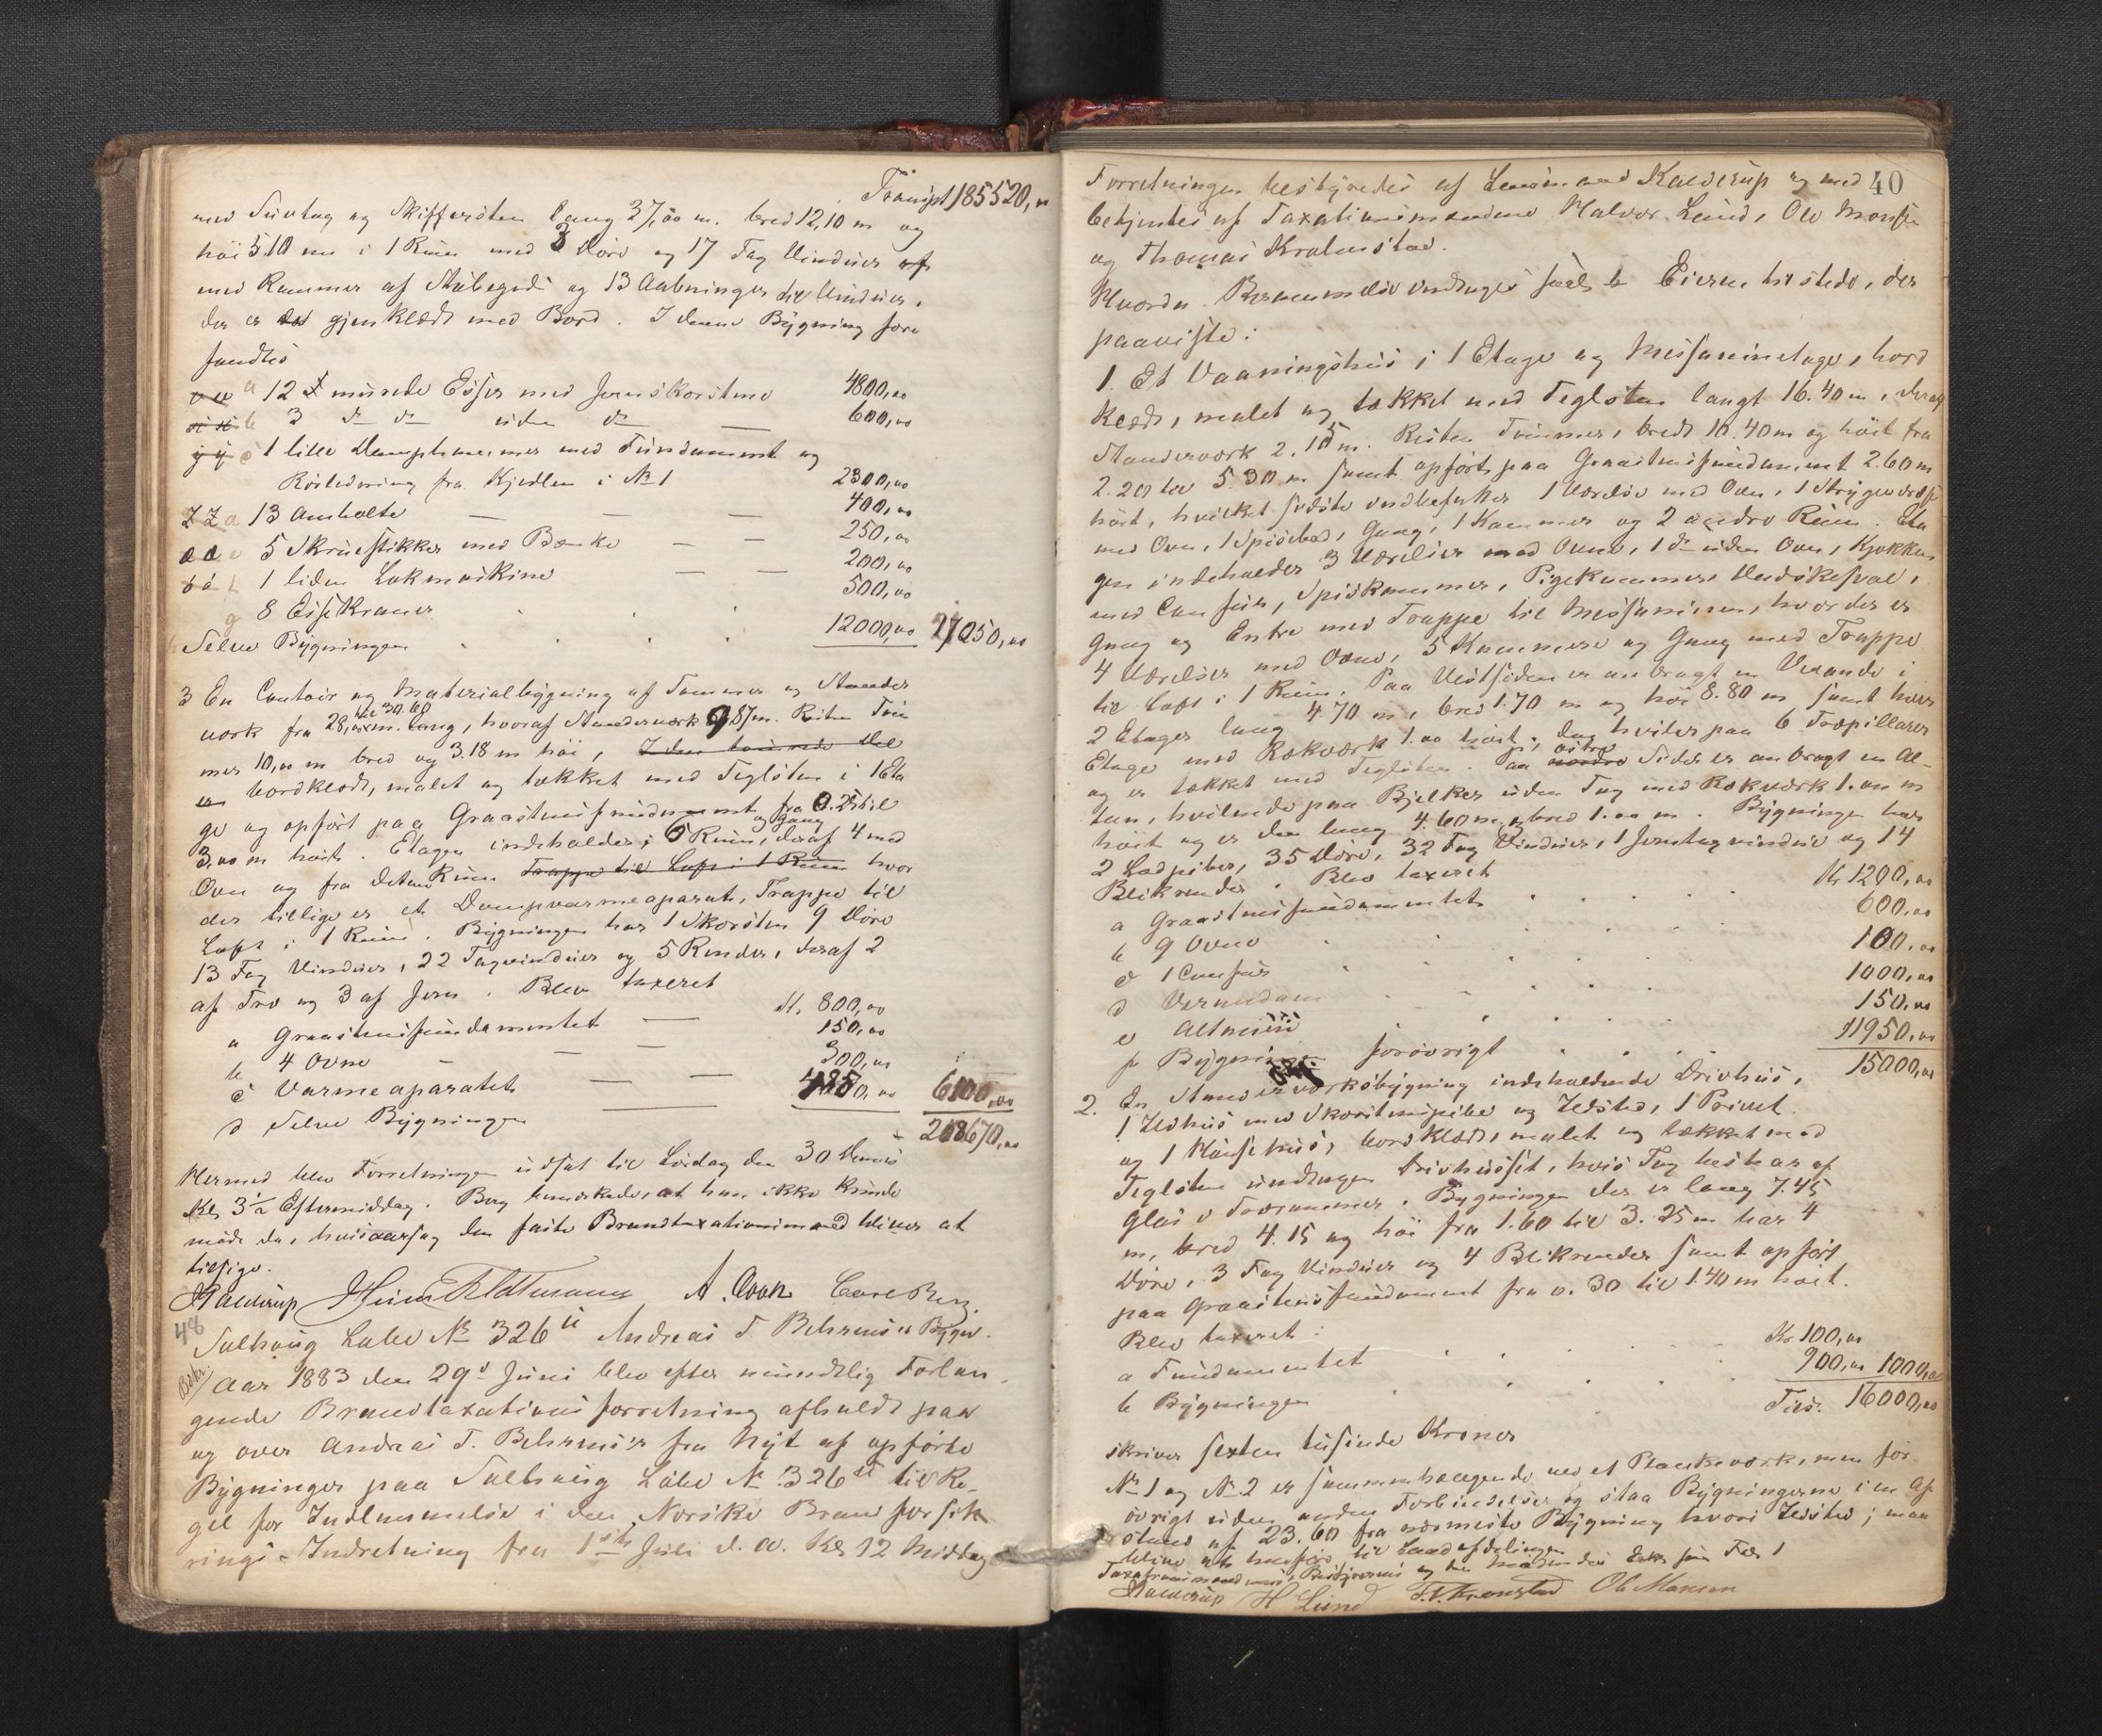 Transpt 185520,00
med Suntag og Skiffersten lang 37,00 m. bred 12,10 m og
höi 5 10 m i 1 Rum med 3 Döre og 17 Fag Vinduer af
med Rammer af Stöbegods og 13 Aabninger til Vinduer,
der er gjenklædt med Bord. I denne Bygning fore
fandtes
a 12 murede Esser med Jernskorstene 4800,00
b 3 do do uden do 600,00
c 1 liden Damphammer med Fundament og
Rörledning fra Kjedlen i No 1 2300,00
d 13 Ambolte 400,00
e 5 Skruestikker med Bænke 250,00
f 1 liden Lokmaskine 200,00
g 8 Essekraner 500,00
h Selve Bygningen 12000,00 21050,00
3 En Contoir og Materialbygning af Tømmer og Stander
værk fra 28, til 30.60 m. lang, hvoraf Standerværk 9,87 m. Resten Töm
mer 10,00 m bred og 3.18 m höi,
er bordklædt, malet og tækket med Teglsten i 1 Eta
ge og opfört paa Graastensfundament fra 0.25 til
3,00 m höit. Etagen indeholder 6 Rum, og Gang deraf 4 med
Ovn og fra dette Rum Trappe til Loft i 1 Rum hvor
der tillige er et Dampvarmeaparat, Trappe til
Loft i 1 Rum. Bygningen har 1 Skorsten 9 Döre
13 Fag Vinduer, 22 Tagvinduer og 5 Render, deraf 2
af Træ og 3 af Jern. Blev taxeret
a Graastensfundamentet Kr. 800,00
b 4 Ovne 150,00
c Varmeaparatet 300,00
d Selve Bygningen 4850,00 6100,00
208670,00
Hermed blev Forretningen udsat til Lördag den 30 Dennes
Kl. 3½ Eftermiddag. Berg bemærkede, at han ikke kunde
möde da, hvisaarsag den faste Brandtaxationsmand bliver at
tilsige.
Kalderup A. Cook Carl Berg.
48 Solhaug Löbe No 326 u Andreas T. Behrens's Bygn.
Aar 1883 den 29de Juni blev efter mundtlig Forlan-
gende Brandtaxationsforretning afholdt paa
og over Andreas T. Behrens's fra Nyt af opförte
Bygninger paa Solhaug Löbe No 326 u til Re-
gel for Indlemmelse i den Norske Brandforsik
rings-Indretning fra 1ste Juli d. A. Kl. 12 Middag
40
Forretningen bestyredes af Lensmand Kalderup og med
betjentes af Taxationsmændene Halvor Lund, Ole Monsen
og Thomas Kronstad.
Hvorda Brandmelse undtages Eieren tilstede, der
paaviste:
1. Et Vaaningshus i 1 Etage og Messaninetage, bord
klædt, malet og tækket med Teglsten langt 16.40 m, deraf
Standerværk 2.15 m. Resten Tömmer, bredt 10.40 m og höit fra
2.20 til 5.30 m samt opfört paa Graastensfundament 2.60 m
höit, hvilket sidste indbefatter 1 Værelse med Ovn, 1 Strygeværelse
med Ovn, 1 Spisebod, Gang, 1 Kammer og 2 andre Rum. Eta
gen indeholder 3 Værelser med Ovne, 1 do uden Ovn, Kjökken
med Comfur, Spiskammer, Pigekammer,
Gang og Entre med Trappe til Messaninen, hvor der er
4 Værelser med Ovne, 5 Kammere og Gang med Trappe
til Loft i 1 Rum. Paa Vestsiden er anbragt en Veranda i
2 Etager lang 4.70 m, bred 1.70 m og höi 8.80 m samt hver
Etage med Rækværk 1.00 höit, den hviler paa 6 Træpillarer
og er tækket med Teglsten. Paa östre Side er anbragt en Al-
tan, hvilende paa Bjelker uden Tag med Rækværk 1.00 m
höit og er den lang 4.60 m, bred 1.00 m. Bygningen har
2 Ladpiber, 35 Döre, 32 Fag Vinduer, 1 Jerntagvindue og 14
Blikrender. Blev taxeret
a Graastensfundamentet Kr 1200,00
b 9 Ovne 600,00
c 1 Comfur 100,00
d Verandaen 1000,00
e Altanen 150,00
f Bygningen forövrigt 11950,00
15000,00
2. En Standerværksbygning indeholdende Drivhus,
1 Ildhus med Skorstenspibe og Ildsted, 1 Privet
og 1 Hönsehus, bordklædt, malet og tækket med
Teglsten undtagen Drivhuset, hvis Tag bestaar af
Glas i Trærammer. Bygningen der er lang 7.45
m, bred 4.15 og höi fra 1.60 til 3.25 m har 4
Döre, 3 Fag Vinduer og 4 Blikrender samt opfört
paa Graastensfundament fra 0.30 til 1.40 m höit.
Blev taxeret:
a Fundamentet Kr 100,00
b Bygningen 900,00 1000,00
Tils. 16000,00
skriver sexten tusinde Kroner
No 1 og No 2 er sammenhængende ved et Plankeværk, men for
övrigt uden anden Forbindelse og staa Bygningerne i en Af
stand af 23.60 fra nærmeste Bygning hvori Ildsted;
bliver at henföre til Landafdelingen
Kalderup H Lund T.N. Kronstad Ole Monsen